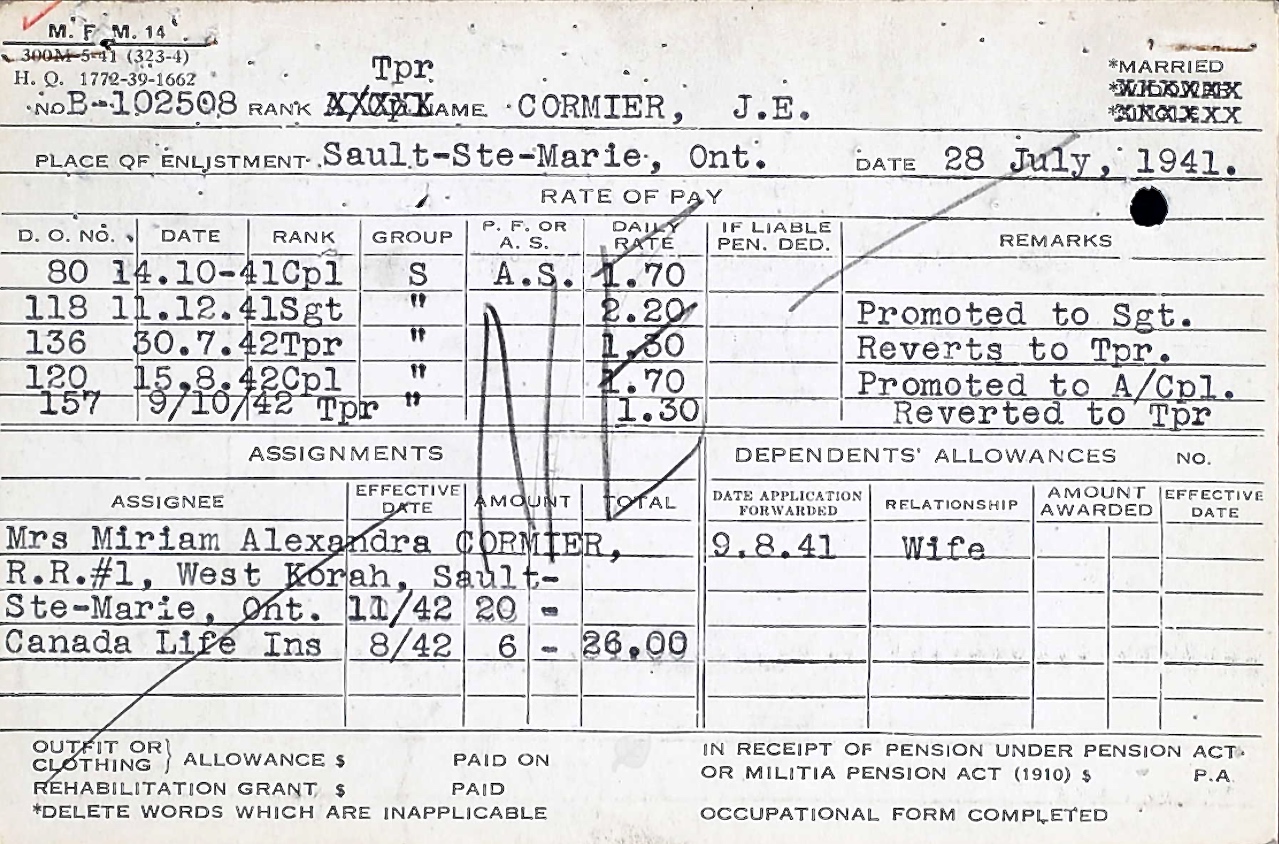 M. F. M. 14
300M-5-41 (323-4)
H. Q. 1772-39-1662
Tpr
NO B-102508 RANK NAME CORMIER, J.E.
*MARRIED
PLACE OF ENLISTMENT Sault-Ste-Marie, Ont. DATE 28 July, 1941.
RATE OF PAY
D. O. NO. DATE RANK GROUP P. F. OR A. S. DAILY RATE IF LIABLE PEN. DED. REMARKS
80 14.10-41 Cpl S A.S. 1.70
118 11.12.41 Sgt " 2.20 Promoted to Sgt.
136 30.7.42 Tpr " 1.30 Reverts to Tpr.
120 15.8.42 Cpl " 1.70 Promoted to A/Cpl.
157 9/10/42 Tpr " 1.30 Reverted to Tpr
ASSIGNMENTS DEPENDENTS' ALLOWANCES NO.
ASSIGNEE EFFECTIVE DATE AMOUNT TOTAL DATE APPLICATION FORWARDED RELATIONSHIP AMOUNT AWARDED EFFECTIVE DATE
Mrs Miriam Alexandra CORMIER, 9.8.41 Wife
R.R.#1, West Korah, Sault-
Ste-Marie, Ont. 11/42 20 -
Canada Life Ins 8/42 6 - 26.00
OUTFIT OR CLOTHING } ALLOWANCE $ PAID ON
REHABILITATION GRANT $ PAID
*DELETE WORDS WHICH ARE INAPPLICABLE
IN RECEIPT OF PENSION UNDER PENSION ACT
OR MILITIA PENSION ACT (1910) $ P.A.
OCCUPATIONAL FORM COMPLETED